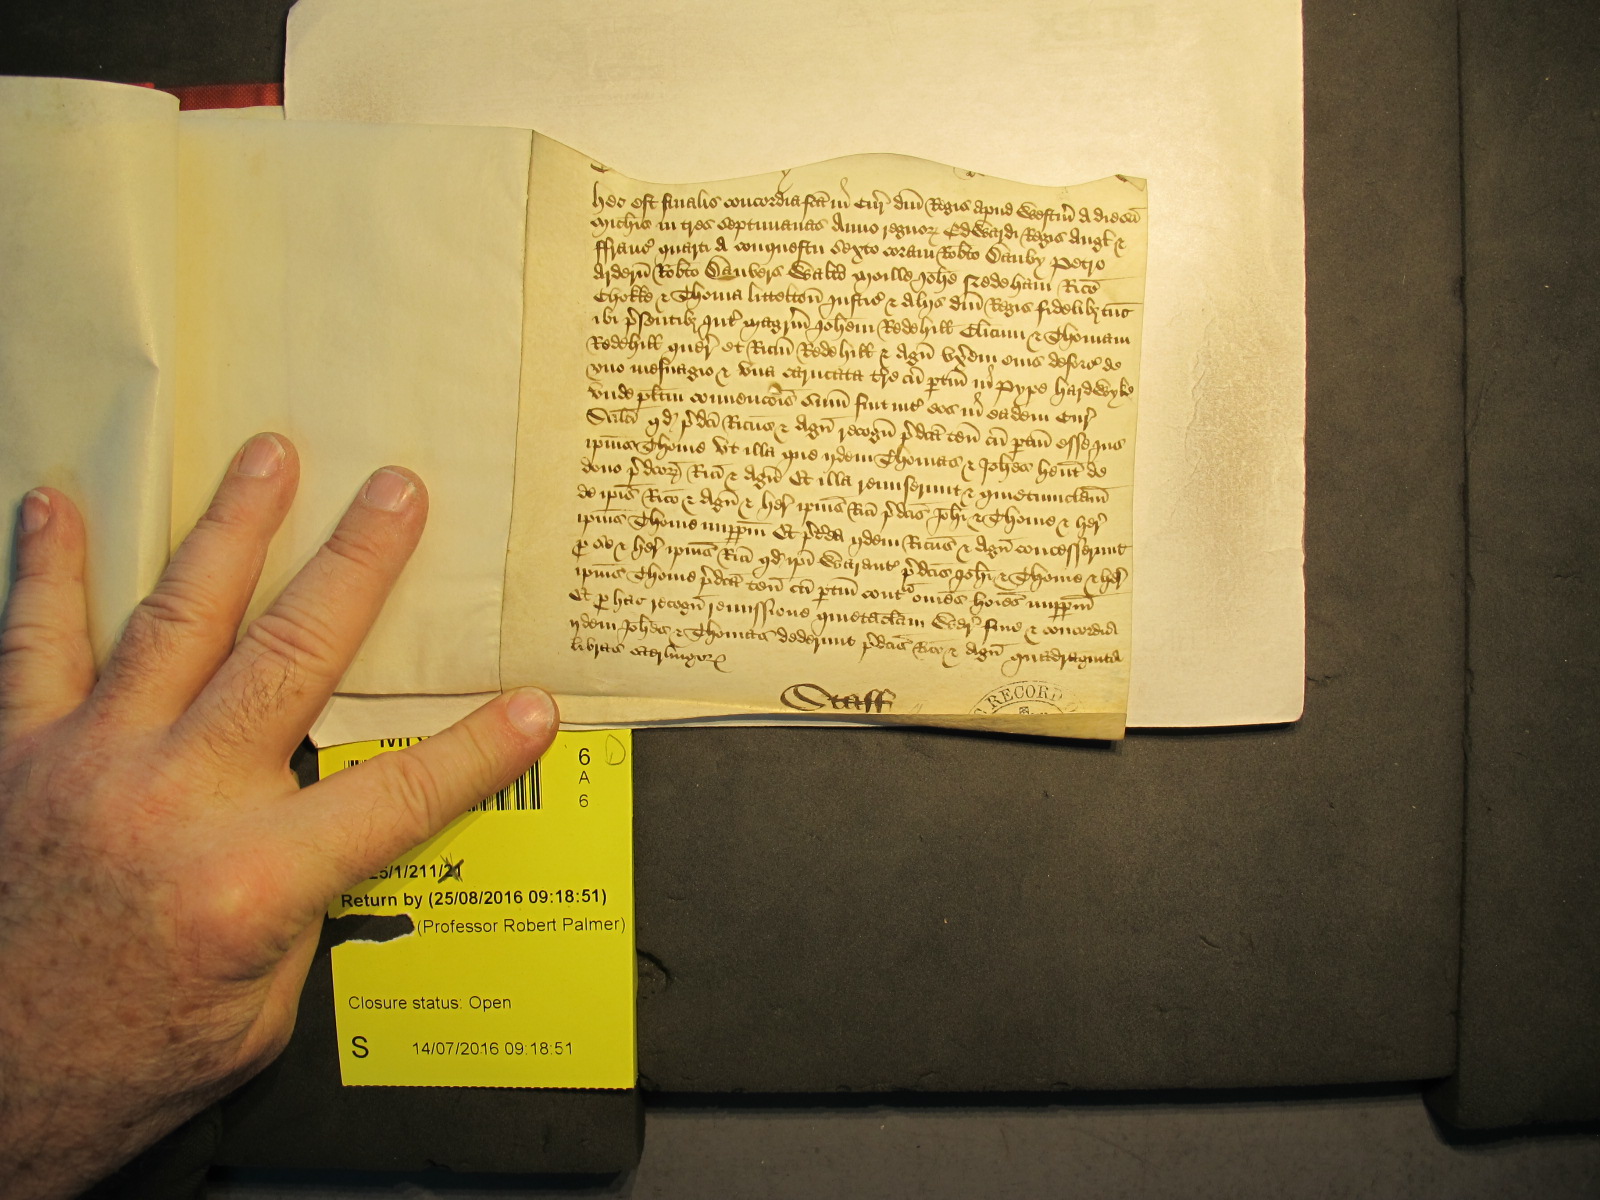 hec est finalis concordia fca in Cur dni Regis apud Westm A die sci
Michis in tres Septimanas Anno regnor Edwardi Regis Angl &
ffranc quarti a conquestu Sexto coram Robto Danby Petro
Ardern Robto Danvers Walto Moille Johe Nedeham Rico
Chokke & Thoma littelton Justic & alijs dni Regis fidelibz tunc
ibi psentibz Int Magrm Johem Redehill Clicum & Thomam
Redehill quer et Ricm Redehill & Agn uxem eius deforc de
uno mesuagio & una carucata tre cu ptin in Pype hardwyke
unde plitm convencois sum fuit int eos in eadem Cur
Scilt qd pdci Ricus & Agn recogn pdca ten cu ptin esse Jus
ipius Thome Ut illa que ijdem Thomas & Johes hent de
dono pdcor Rici & Agn Et illa remiserunt & quietumclam
de ipis Rico & Agn & her ipius Rici pdcis Johi & Thome & her
ipius Thome imppm Et pterea ijdem Ricus & Agn concesserunt
p se & her ipius Rici qd ipi Warant pdcis Johi & Thome & her
ipius Thome pdca ten cu ptin contra omes hoies imppm
Et p hac recogn remissione quietaclam War fine & concordia
ijdem Johes & Thomas dederunt pdcis Rico & Agn quadraginta
libras sterlingor
Staff
RECOR
6
A
6
25/1/211/21
Return by (25/08/2016 09:18:51)
(Professor Robert Palmer)
Closure status: Open
S 14/07/2016 09:18:51